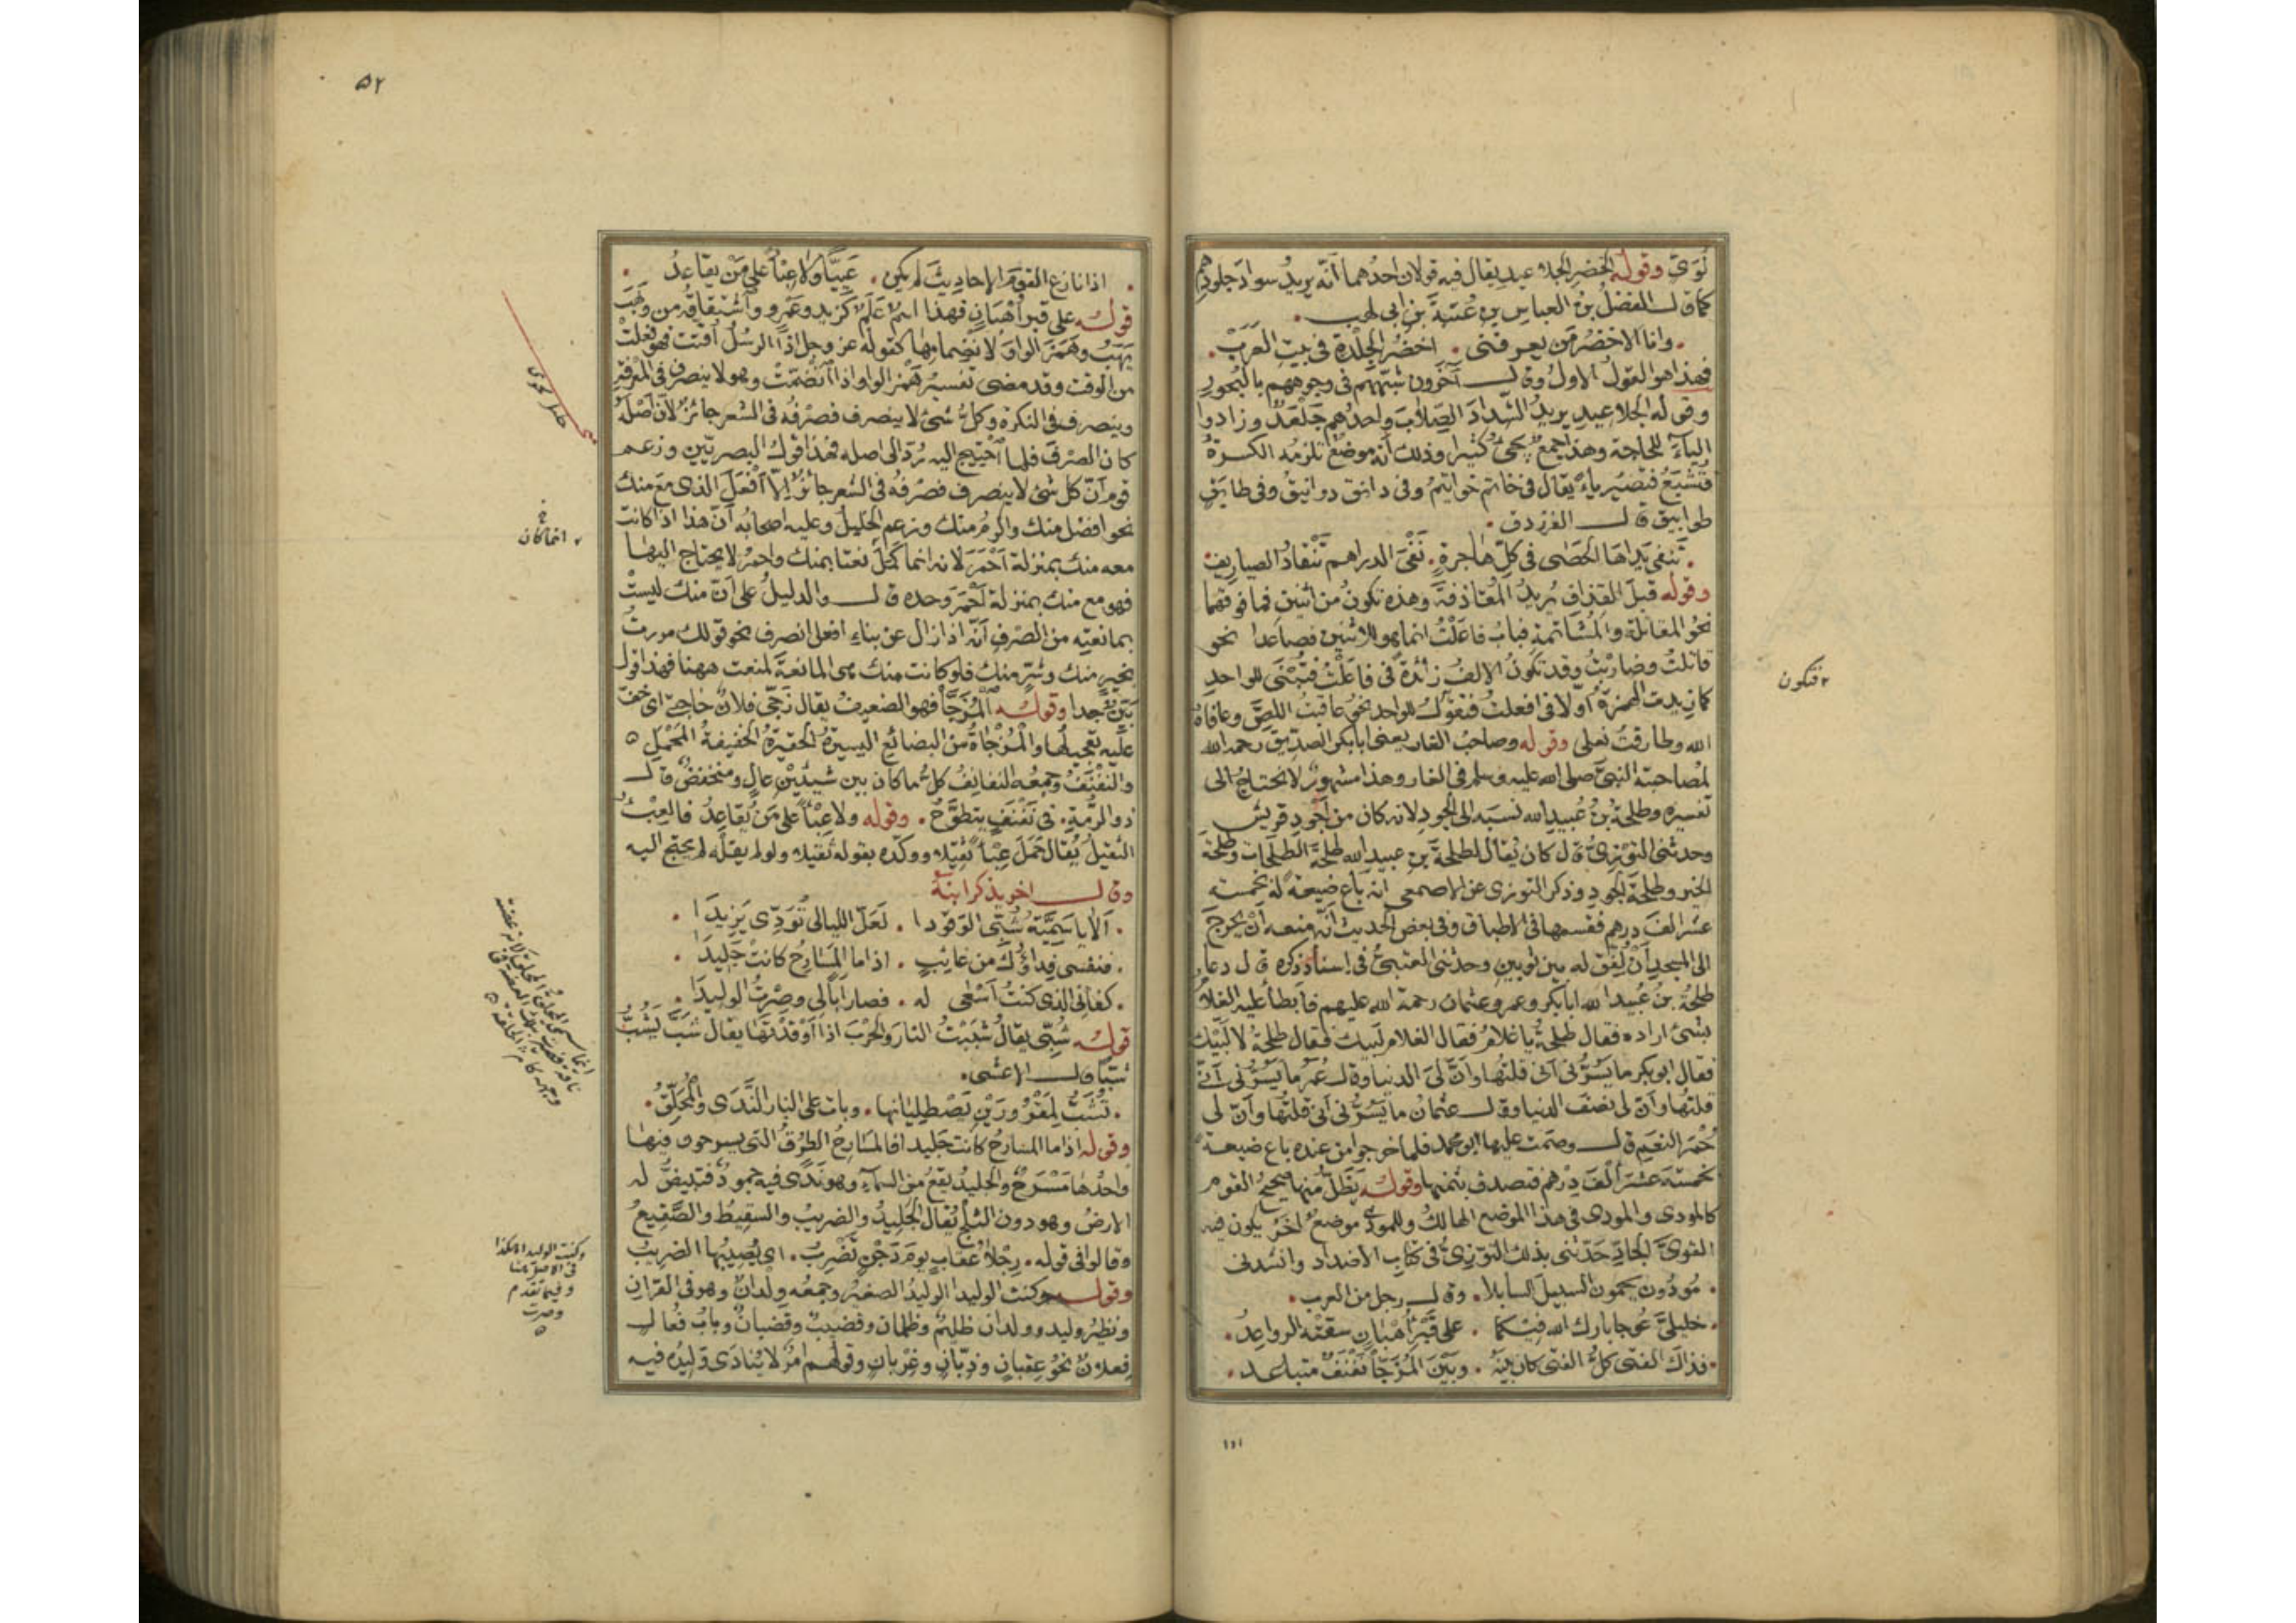 لؤى وقوله الخضر الجلاعيد يقال فيه قولان احدهما أنه يريد سواد جلودهم
كما قال الفضل بن العباس بن عتبة بن ابى لهب
وانا الاخضر من يعرفنى . اخضر الجلدة فى بيت العرب
فهذا هو القول الاول وقال آخرون شبههم فى وجوههم بالبحور
وقوله الجلاعيد يريد الشداد الصلاب واحدهم جلعد وزادوا
الياء للحاجة وهذا جمع يجئ كثيرا وذلك أنه موضع تلزمه الكسرة
فتشبع فتصير ياء يقال فى خاتم خواتيم وفى دانق دوانيق وفى طابق
طوابيق قال الفرزدق
تنفى يداها الحصى فى كل هاجرة . نفى الدراهم تنقاد الصياريف
وقوله قبل القذاف يريد المقاذفة وهذه تكون من اثنين فما فوقهما
نحو المقاتلة والمشاتمة فباب فاعلت انما هو للاثنين فصاعدا نحو
قاتلت وضاربت وقد تكون الالف زائدة فى فاعلت فتبنى للواحد
كما زيدت الهمزة أولا فى افعلت فتقول للواحد نحو عاقبت اللص وعافاه
الله وطارقت نعلى وقوله وصاحب الغار يعنى أبا بكر الصديق رحمه الله
لمصاحبته النبى صلى الله عليه وسلم فى الغار وهذا مشهور لا يحتاج الى
تفسيره وطلحة بن عبيد الله نسبه الى الجود لانه كان من أجود قريش
وحدثنى التوزى قال كان يقال لطلحة بن عبيد الله طلحة الطلحات وطلحة
الخير وطلحة الجود وذكر التوزى عن الاصمعى انه باع ضيعة له بخمسة
عشر الف درهم فقسمها فى الاطباق وفى بعض الحديث أنه منعه أن يخرج
الى المسجد أن لفق له بين ثوبين وحدثنى العتبى فى اسناد ذكره قال دعا
طلحة بن عبيد الله أبا بكر وعمر وعثمان رحمة الله عليهم فابطأ عليه الغلام
بشئ اراده فقال طلحة يا غلام فقال الغلام لبيك فقال طلحة لا لبيك
فقال ابو بكر ما يسرنى أنى قلتها وأن لى الدنيا وقال عمر ما يسرنى أنى
قلتها وأن لى نصف الدنيا وقال عثمان ما يسرنى أنى قلتها وأن لى
حمر النعم قال وصمت عليها ابو محمد فلما خرجوا من عنده باع ضيعة
بخمسة عشر ألف درهم فتصدق بثمنها وقوله يظل منها صحيح القوم
كالمودى والمودى فى هذا الموضع الهالك وللمودى موضع آخر يكون فيه
القوى الجاد حدثنى بذلك التوزى فى كتاب الاضداد وانشدنى
مودون يحمون السبيل السابلا . وقال رجل من العرب
خليلى عوجا بارك الله فيكما . على قبر أهبان سقته الرواعد
فذاك الفتى كل الفتى كان بينه . وبين المزجا نفنف متباعد
۱۵۱
۲ فتكون
۵۲
اذا نازع القوم الاحاديث لم يكن . عييا ولا عبئا على من يقاعد
قوله على قبر أهبان فهذا اسم علم كزيد وعمرو واشتقاقه من وهب
يهب وهمز الواو لانضمامها كقوله عز وجل اذا الرسل أقتت فهو فعلت
من الوقت وقد مضى تفسير همز الواو اذا انضمت وهو لا ينصرف فى المعرفة
وينصرف فى النكرة وكل شئ لا ينصرف فصرفه فى الشعر جائز لأن أصله
كان الصرف فلما احتيج اليه رد الى اصله فهذا قول البصريين وزعم
قوم أن كل شئ لا ينصرف فصرفه فى الشعر جائز الا أفعل الذى مع منك
نحو افضل منك واكرم منك وزعم الخليل وعليه اصحابه أن هذا اذا كانت
معه منك بمنزلة أحمر لانه انما كمل نعتا بمنك واحمر لا يحتاج اليها
فهو مع منك بمنزلة أحمر وحده قال والدليل على أن منك ليست
بمانعته من الصرف أنه اذا زال عن بناء افعل انصرف نحو قولك مررت
بخير منك وشر منك فلو كانت منك هى المانعة لمنعت ههنا فهذا قول
بين جدا وقوله المزجأ فهو الضعيف يقال زجى فلان حاجتى اى خف
عليه تعجيلها والمزجاة من البضائع اليسيرة الحقيرة الخفيفة المحمل
والنفنف وجمعه النفانف كل ما كان بين شيئين عال ومنخفض قال
ذو الرمة . فى نفنف يتطوح . وقوله ولا عبئا على من يقاعد فالعبء
الثقيل يقال حمل عبئا ثقيلا ووكده بقوله ثقيلا ولو لم يقله لم يحتج اليه
وقال اخر يذكر ابنة
ألا يا سمية شبى الوقودا . لعل الليالى تؤدى يزيدا
فنفسى فداؤك من غائب . اذا ما المسارح كانت جليدا
كفانى الذى كنت أسعى له . فصار أبا لى وصرت الوليدا
قوله شبى يقال شببت النار والحرب اذا أوقدتها يقال شب يشب
شبا قال الاعشى
تشب لمقرورين يصطليانها . وبات على النار الندى والمحلق
وقوله اذا ما المسارح كانت جليدا فالمسارح الطرق التى يسرحون فيها
واحدها مسرح والجليد يقع من السماء وهو ندى فيه جمود فتبيض له
الارض وهو دون الثلج يقال الجليد والضريب والسقيط والصقيع
وقالوا فى قوله . رجلا عقاب يوم دجن تضرب . اى يصيبها الضريب
وقوله وكنت الوليدا الوليد الصغير وجمعه ولدان وهو فى القرآن
ونظير وليد وولدان ظليم وظلمان وقضيب وقضبان وباب فعال
فعلان نحو عقبان وذبان وغربان وقولهم امر لا ينادى وليده فيه
۲ انما كان
وكنت الوليدا هكذا
فى الاصل هنا
وفيما تقدم
وصرت